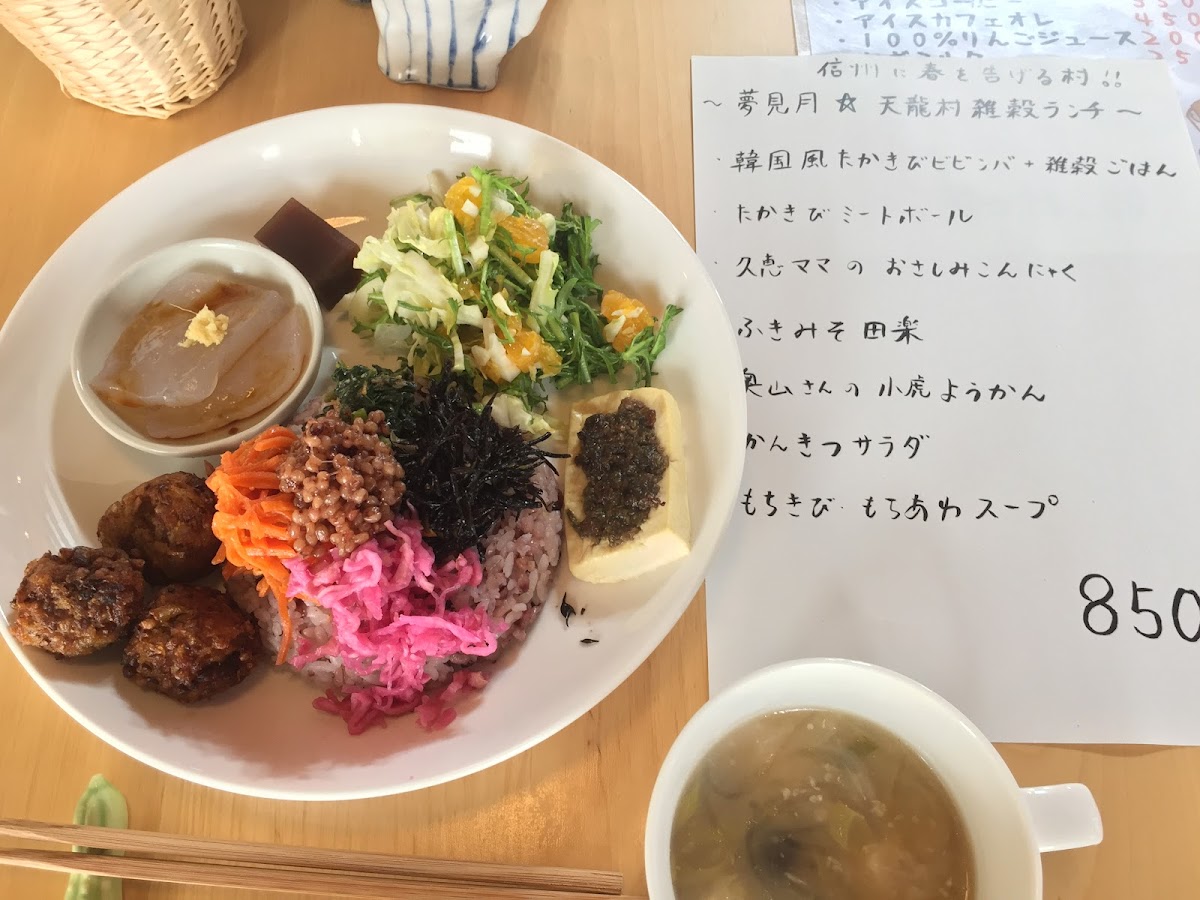 ・アイスカフェオレ 450
・100%りんごジュース 200
信州に春を告げる村!!
～夢見月☆天龍村雑穀ランチ～
・韓国風たかきびビビンバ+雑穀ごはん
・たかきびミートボール
・久恵ママのおさしみこんにゃく
ふきみそ田楽
奥山さんの小虎ようかん
かんきつサラダ
もちきび・もちあわスープ
850